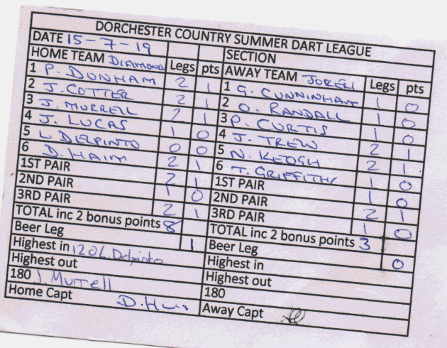 DORCHESTER COUNTRY SUMMER DART LEAGUE
DATE 15-7-19 SECTION
HOME TEAM DIAMOND Legs pts AWAY TEAM Legs pts
1 P. DUNHAM 2 1 1 G. CUNNINHAM 1 0
2 J. COTTER 2 1 2 O. RANDALL 1 0
3 J. MURRELL 2 1 3 P. CURTIS 1 0
4 J. LUCAS 1 0 4 J. TREW 2 1
5 L. DELPINTO 0 0 5 N. KEOGH 2 1
6 D. HAIM 2 1 6 T. GRIFFITHS 1 0
1ST PAIR 2 1 1ST PAIR 1 0
2ND PAIR 1 0 2ND PAIR 2 1
3RD PAIR 2 1 3RD PAIR 1 0
TOTAL inc 2 bonus points 8 TOTAL inc 2 bonus points 3
Beer Leg 1 Beer Leg 0
Highest in 120 L. Delpinto Highest in
Highest out Highest out
180 J. Murrell 180
Home Capt Away Capt